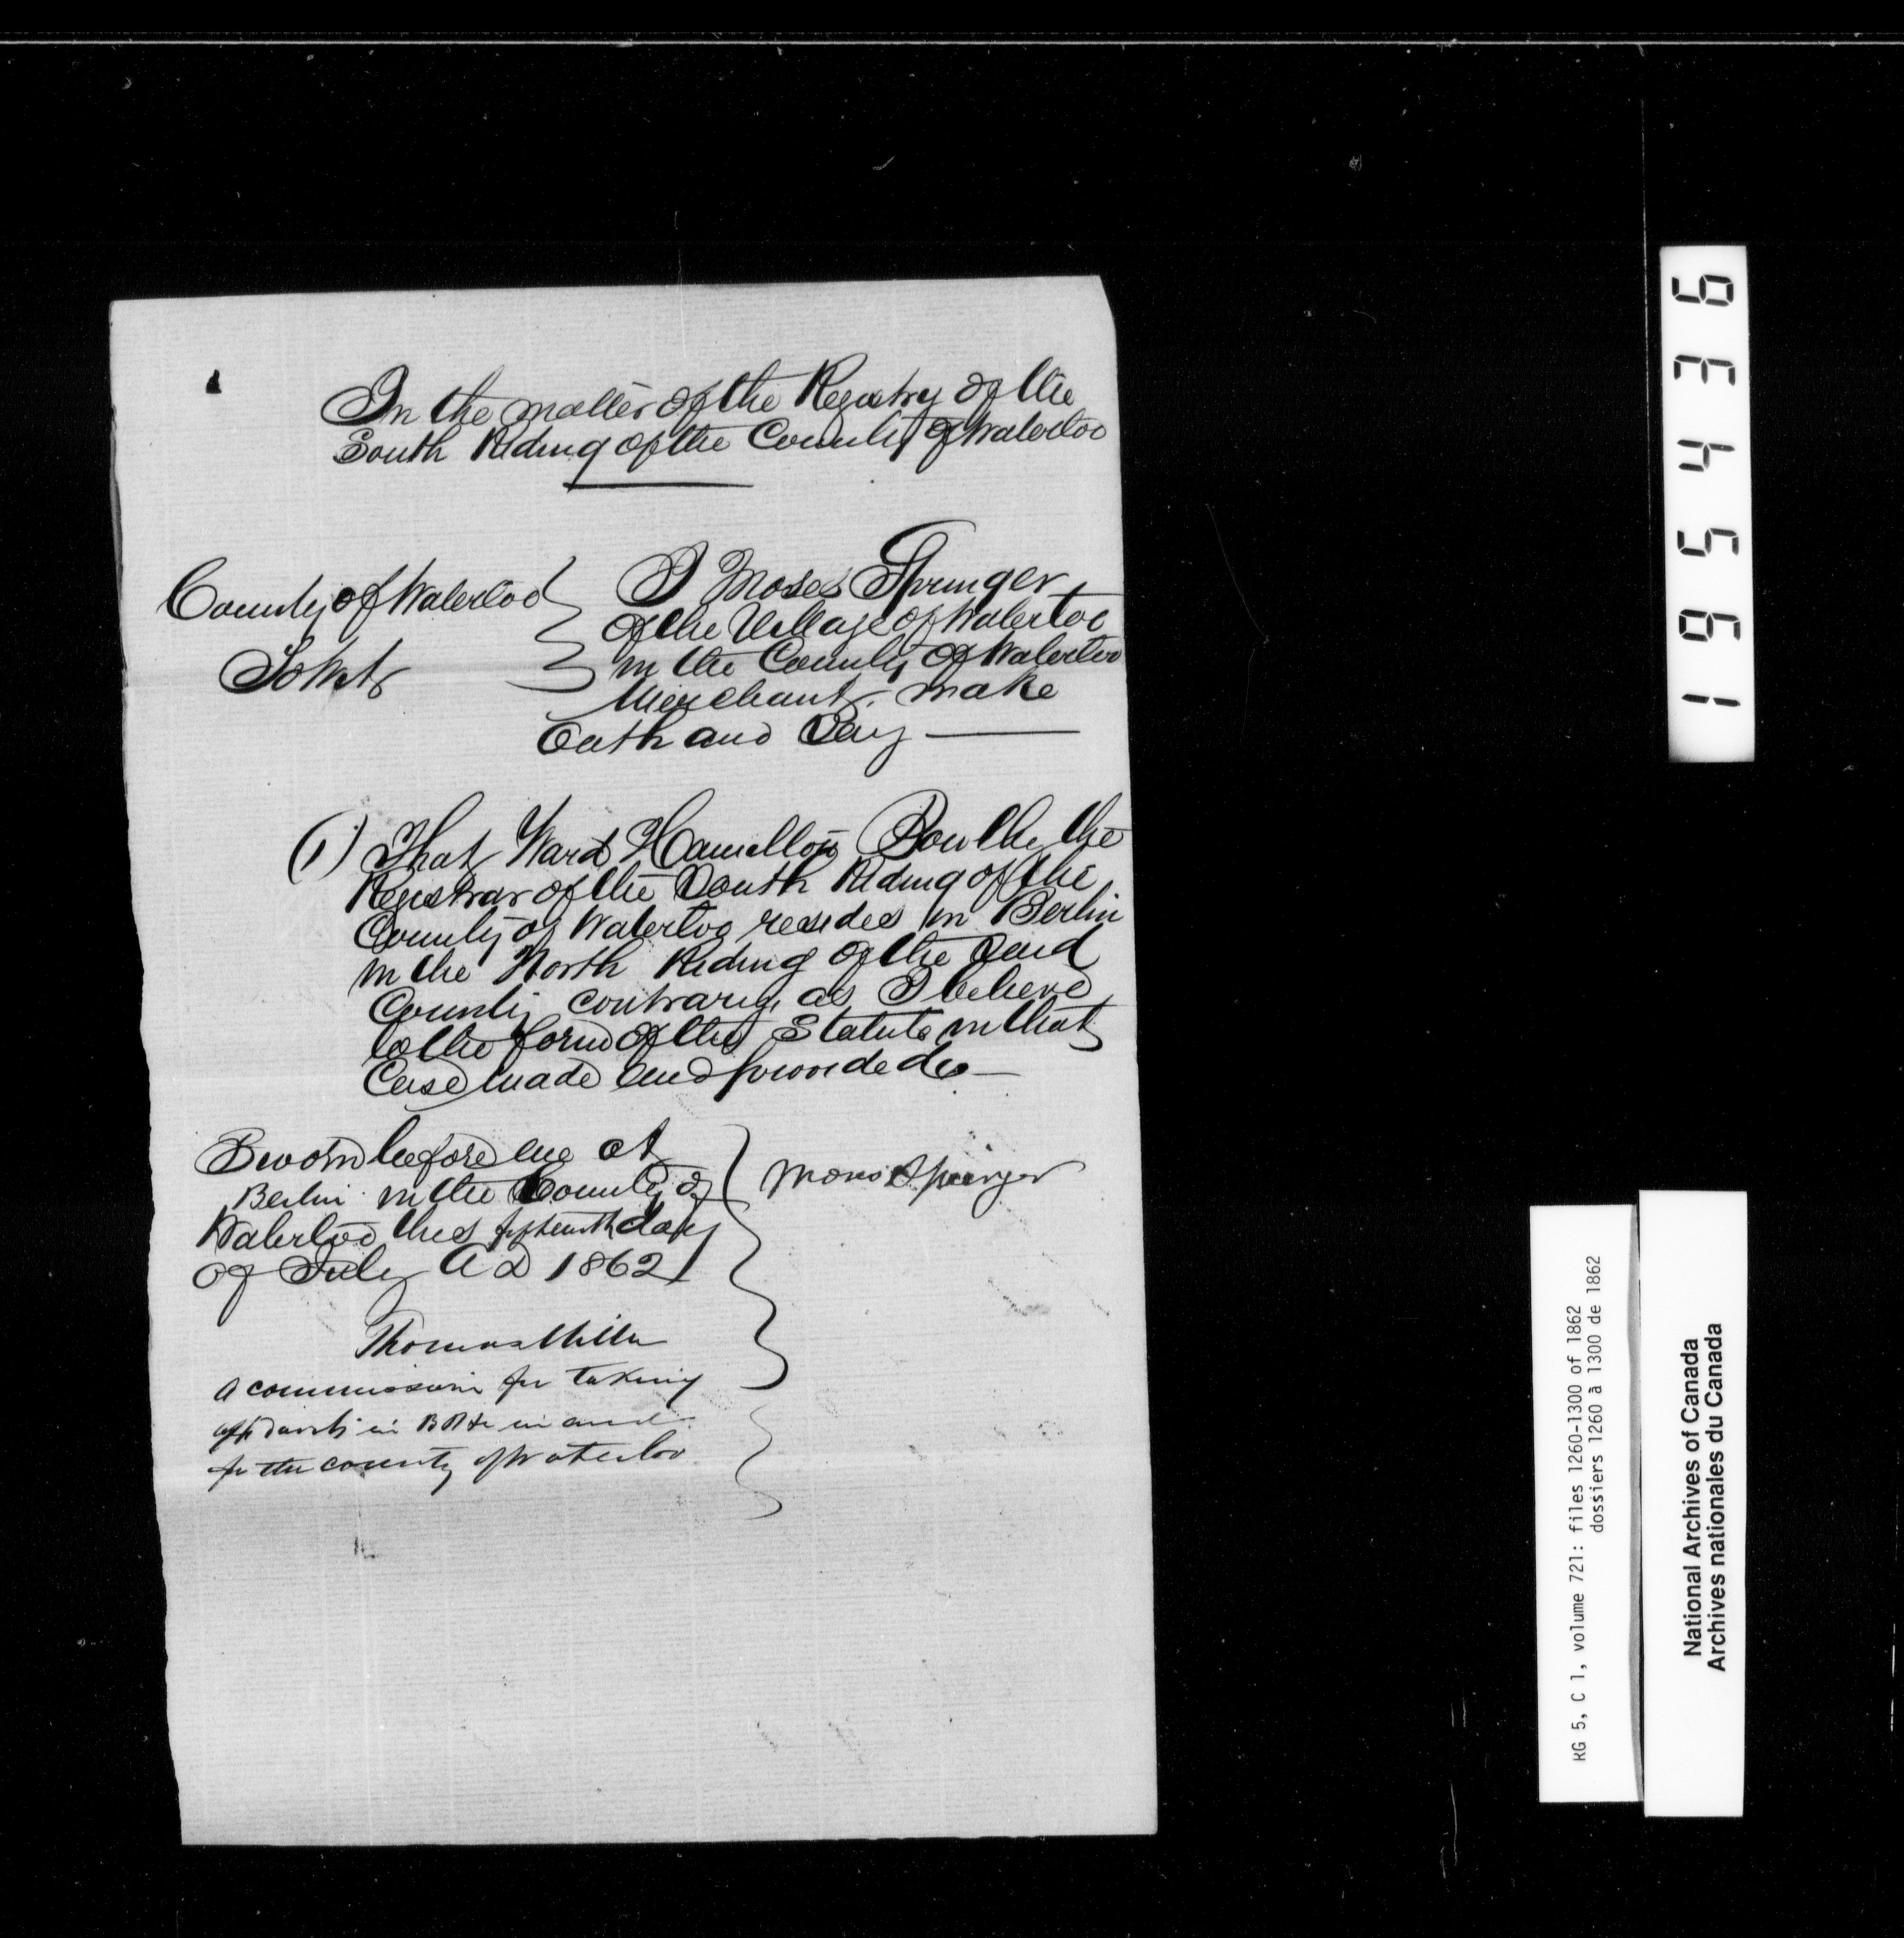 In the matter of the Registry of the
South Riding of the County of Waterloo
County of Waterloo
To Wit
I Moses Springer
of the Village of Waterloo
in the County of Waterloo
Merchant, make
Oath and Say
(1) That Ward Hamilton Bowlby the
Registrar of the South Riding of the
County of Waterloo resides in Berlin
in the North Riding of the Said
County contrary as I believe
to the form of the Statute in that
Case made and provided
Sworn before me at
Berlin in the County of
Waterloo this fifteenth day
of July A D 1862
Moses Springer
Thomas Miller
A commissioner for taking
affidavits in B R &c in and
for the county of Waterloo
195436
RG 5, C 1, volume 721: files 1260-1300 of 1862
dossiers 1260 à 1300 de 1862
National Archives of Canada
Archives nationales du Canada